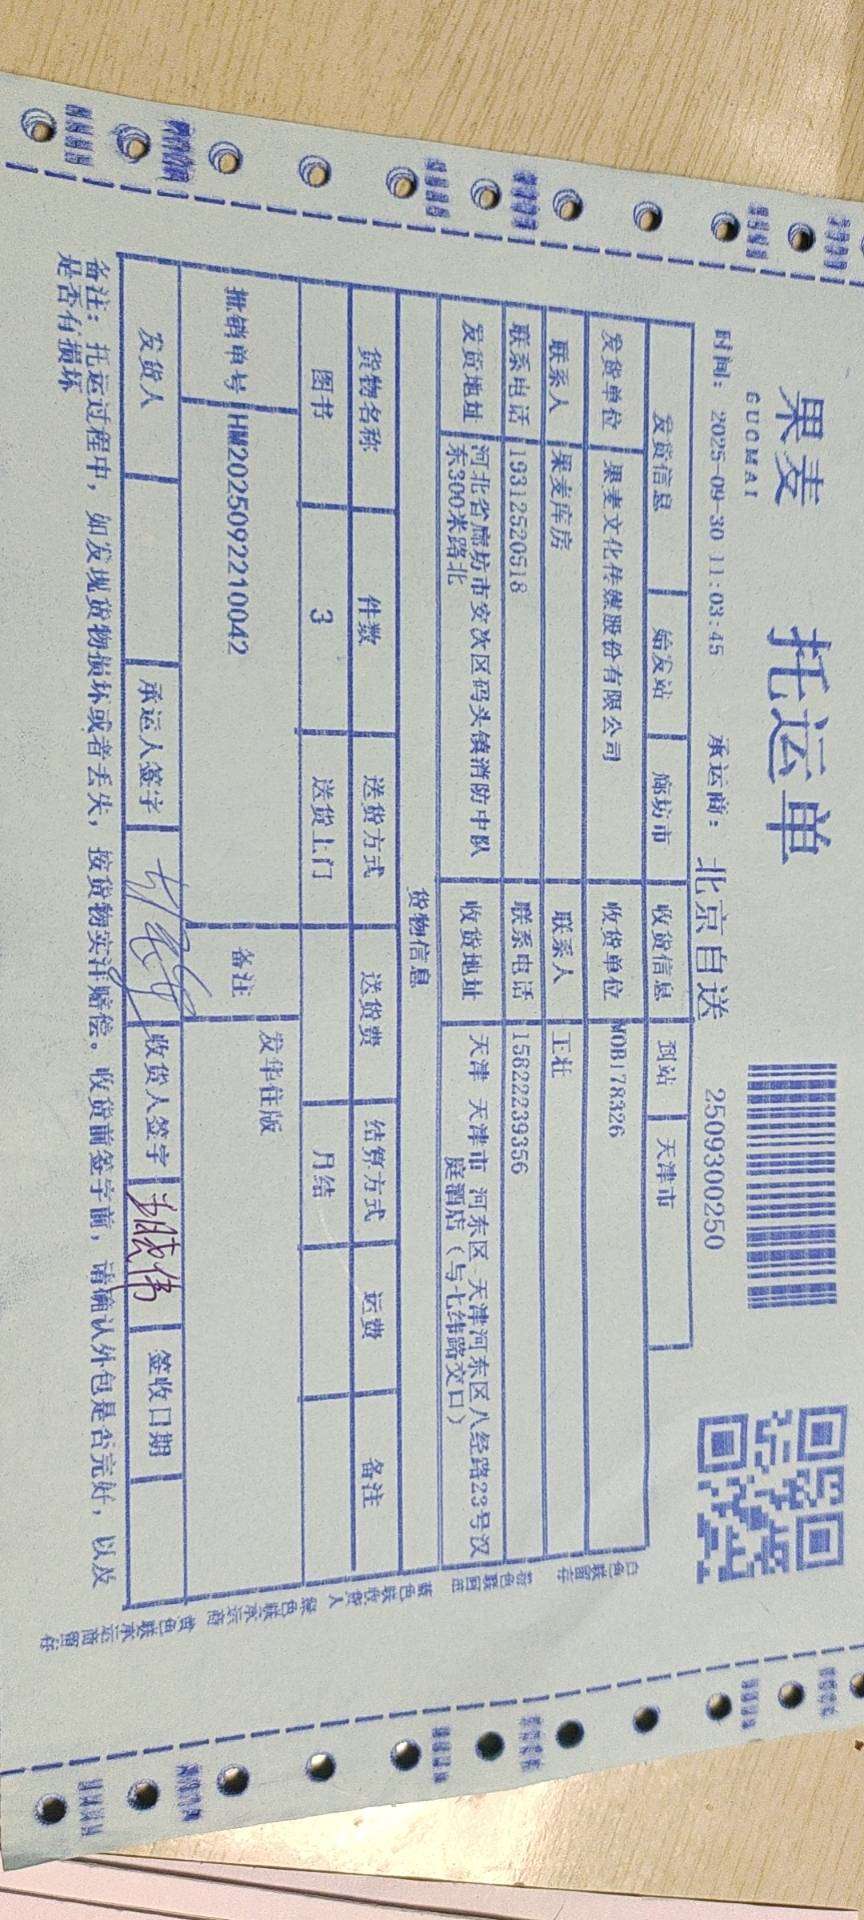 果麦
GUOMAI
托运单
时间: 2025-09-30 11:03:45 承运商: 北京自送 2509300250
发货信息 始发站 廊坊市 收货信息 到站 天津市
发货单位 果麦文化传媒股份有限公司 收货单位 MOB178326
联系人 果麦库房 联系人 王社
联系电话 19312520518 联系电话 15822239356
发货地址 河北省廊坊市安次区码头镇消防中队东300米路北 收货地址 天津 天津市 河东区 天津河东区八经路23号汉庭酒店(与七纬路交口)
货物信息
货物名称 件数 送货方式 送货费 结算方式 运费 备注
图书 3 送货上门 月结
批销单号 HM2025092210042 备注 发华住版
发货人 承运人签字 收货人签字 签收日期
备注: 托运过程中, 如发现货物损坏或者丢失, 按货物实洋赔偿。收货前签字前, 请确认外包是否完好, 以及
是否有损坏
白色联留存 粉色联回单 蓝色联收货人 绿色联承运商 黄色联承运商留存